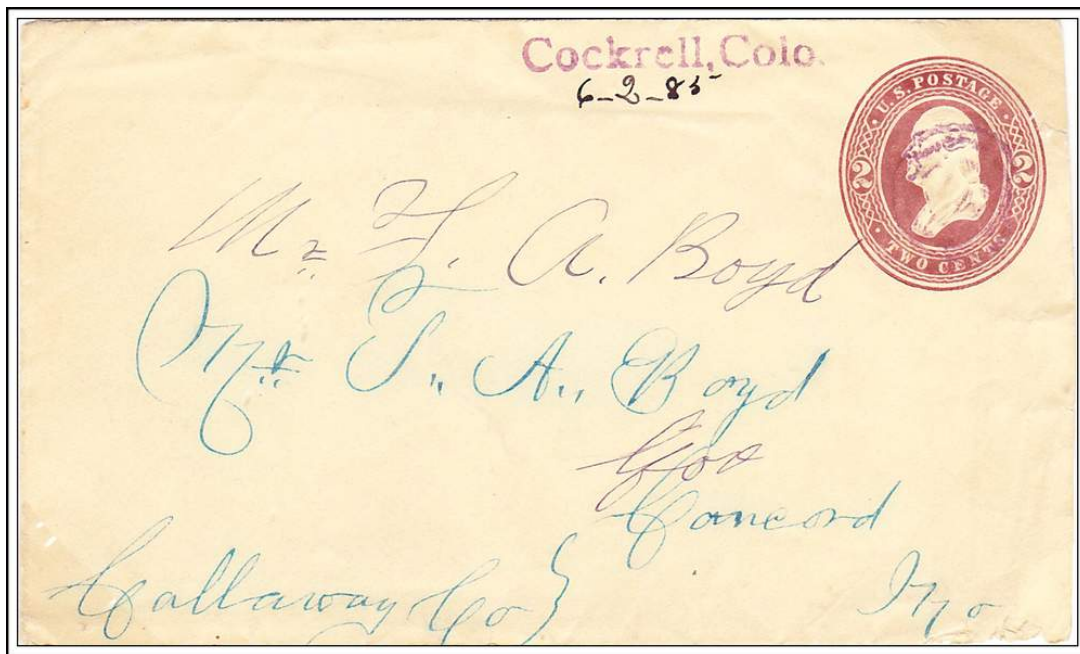 Cockrell, Colo.
6-2-85
U.S. POSTAGE
2 2
TWO CENTS
Mr. T. A. Boyd
Mr. T. A. Boyd
Concord
Callaway Co Mo